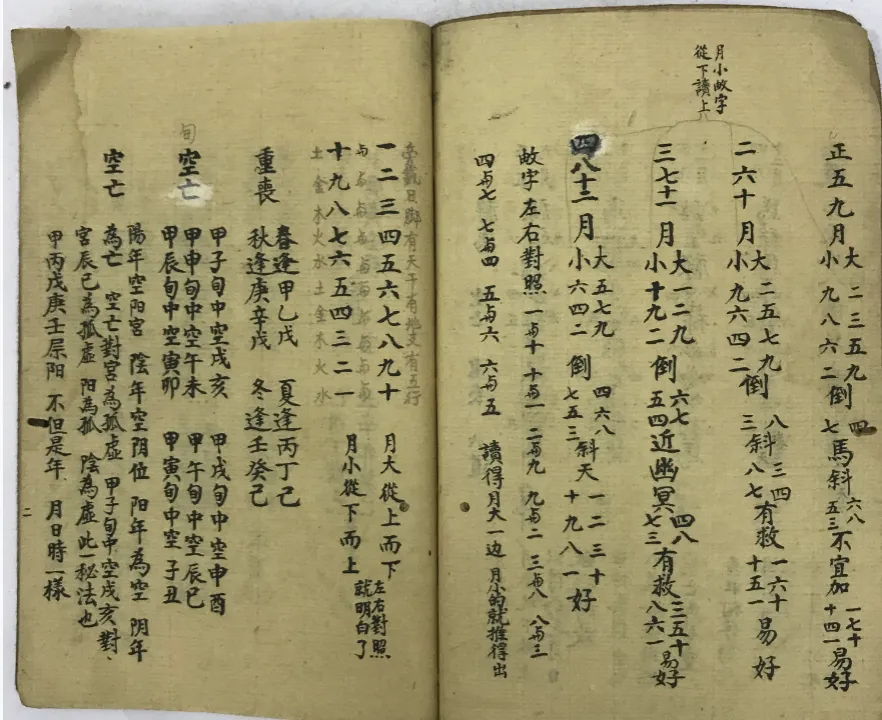 月小故字
從下讀上
正五九月 大 二三五九 小 九八六二 倒 四 七 馬斜 六八 五三 不宜加 一七十 十四一 易好
二六十月 大 二五七九 小 九六四二 倒 八斜 三斜 三四 八七 有救 一六十 十五一 易好
三七十一月 大 一二九 小 十九二 倒 六七 五四 近幽冥 四八 七三 有救 三五十 八六一 易好
四八十二月 大 五七九 小 六四二 倒 四六八 七五三 斜天 一二三十 十九八一 好
故字左右對照 一与十 十与一 二与九 九与二 三与八 八与三
四与七 七与四 五与六 六与五 讀得月大一边 月小的就推得出
日腳有天干有地支有五行
一二三四五六七八九十 月大從上而下 左右對照
与与与与与与与与与与
十九八七六五四三二一 月小從下而上 就明白了
土金木火水土金木火水
重喪 春逢甲乙戊 夏逢丙丁己
秋逢庚辛戊 冬逢壬癸己
旬
空亡 甲子旬中空戌亥 甲戌旬中空申酉
甲申旬中空午未 甲午旬中空辰巳
甲辰旬中空寅卯 甲寅旬中空子丑
空亡 陽年空阳宮 陰年空阴位 阳年為空 阴年
為亡 空亡對宮為孤虛 甲子旬中空戌亥對
宮辰巳為孤虛 阳為孤 陰為虛 此一秘法也
甲丙戊庚壬屬阳 不但是年 月日時一樣
二